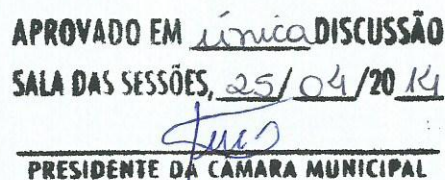 APROVADO EM única DISCUSSÃO
SALA DAS SESSÕES, 25/04/2014
PRESIDENTE DA CÂMARA MUNICIPAL